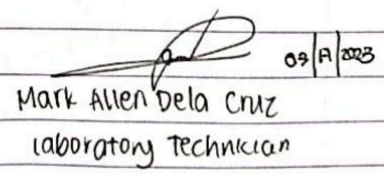 09|A|2023
Mark Allen Dela Cruz
laboratory Technician